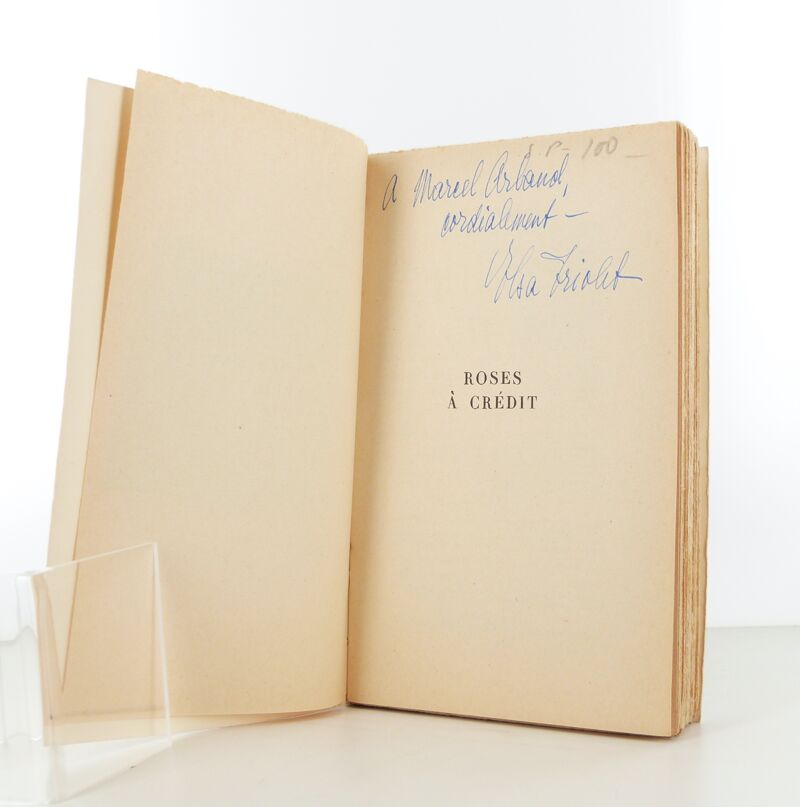 S.P- 100 -
A Marcel Arbaud,
cordialement -
Elsa Triolet
ROSES
À CRÉDIT